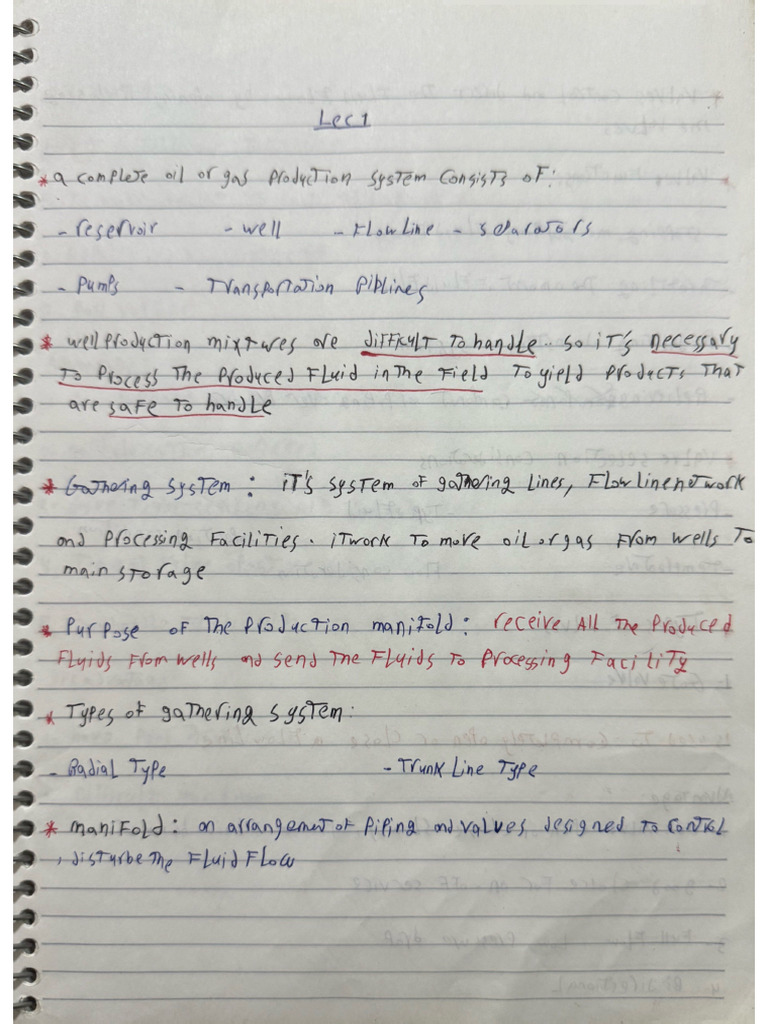 Lec 1
* a complete oil or gas Production system consists of:
- reservoir - well - Flow Line - separators
- Pumps - Transportation Piplines
* well production mixtures are difficult to handle.. so it's necessary
to Process the Produced Fluid in the Field to yield Products that
are safe to handle
* Gathering system: it's system of gathering Lines, Flow line network
and Processing Facilities. it work to move oil or gas From wells to
main storage
* Purpose of the Production manifold: receive All the Produced
Fluids From wells and send the Fluids to Processing Facility
* Types of gathering system:
- Radial Type - Trunk Line Type
* manifold: an arrangement of Piping and valves designed to control
, disturbe the Fluid Flow